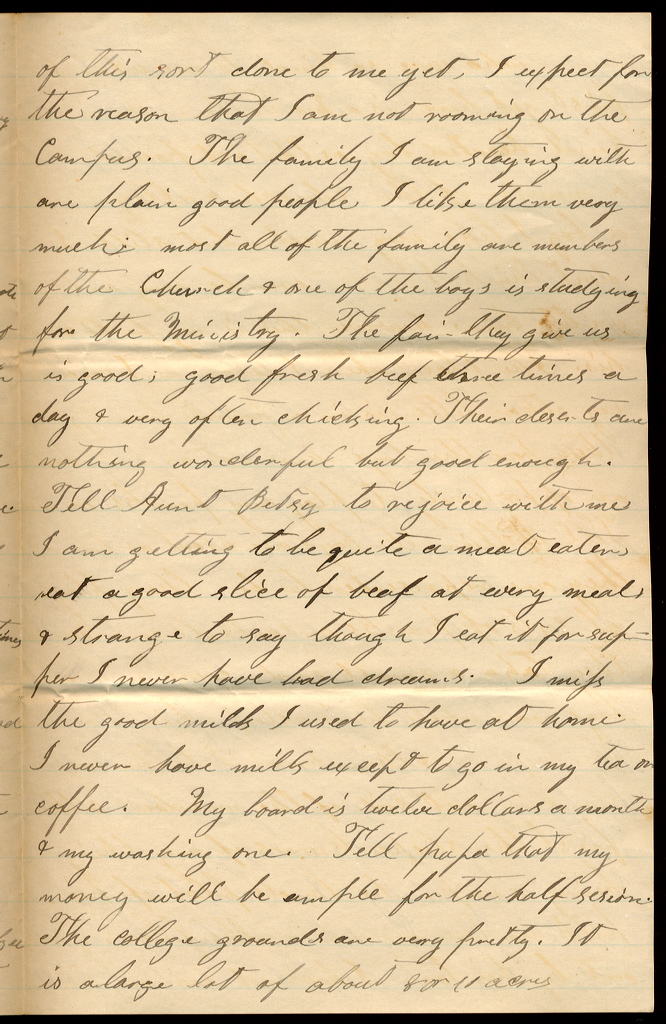 of this sort done to me yet, I expect for
the reason that I am not rooming on the
Campus. The family I am staying with
are plain good people I like them very
much; most all of the family are members
of the Church & one of the boys is studying
for the Ministry. The fair they give us
is good; good fresh beef three times a
day & very often chicking. Their deserts are
nothing wonderful but good enough.
Tell Aunt Betsy to rejoice with me
I am getting to be quite a meat eater,
eat a good slice of beaf at every meal,
& strange to say though I eat it for sup-
per I never have bad dreams. I miss
the good milk I used to have at home.
I never have milk except to go in my tea or
coffee. My board is twelve dollars a month
& my washing one. Tell papa that my
money will be ample for the half sesion.
The college grounds are very pretty. It
is a large lot of about 8 or 10 acres